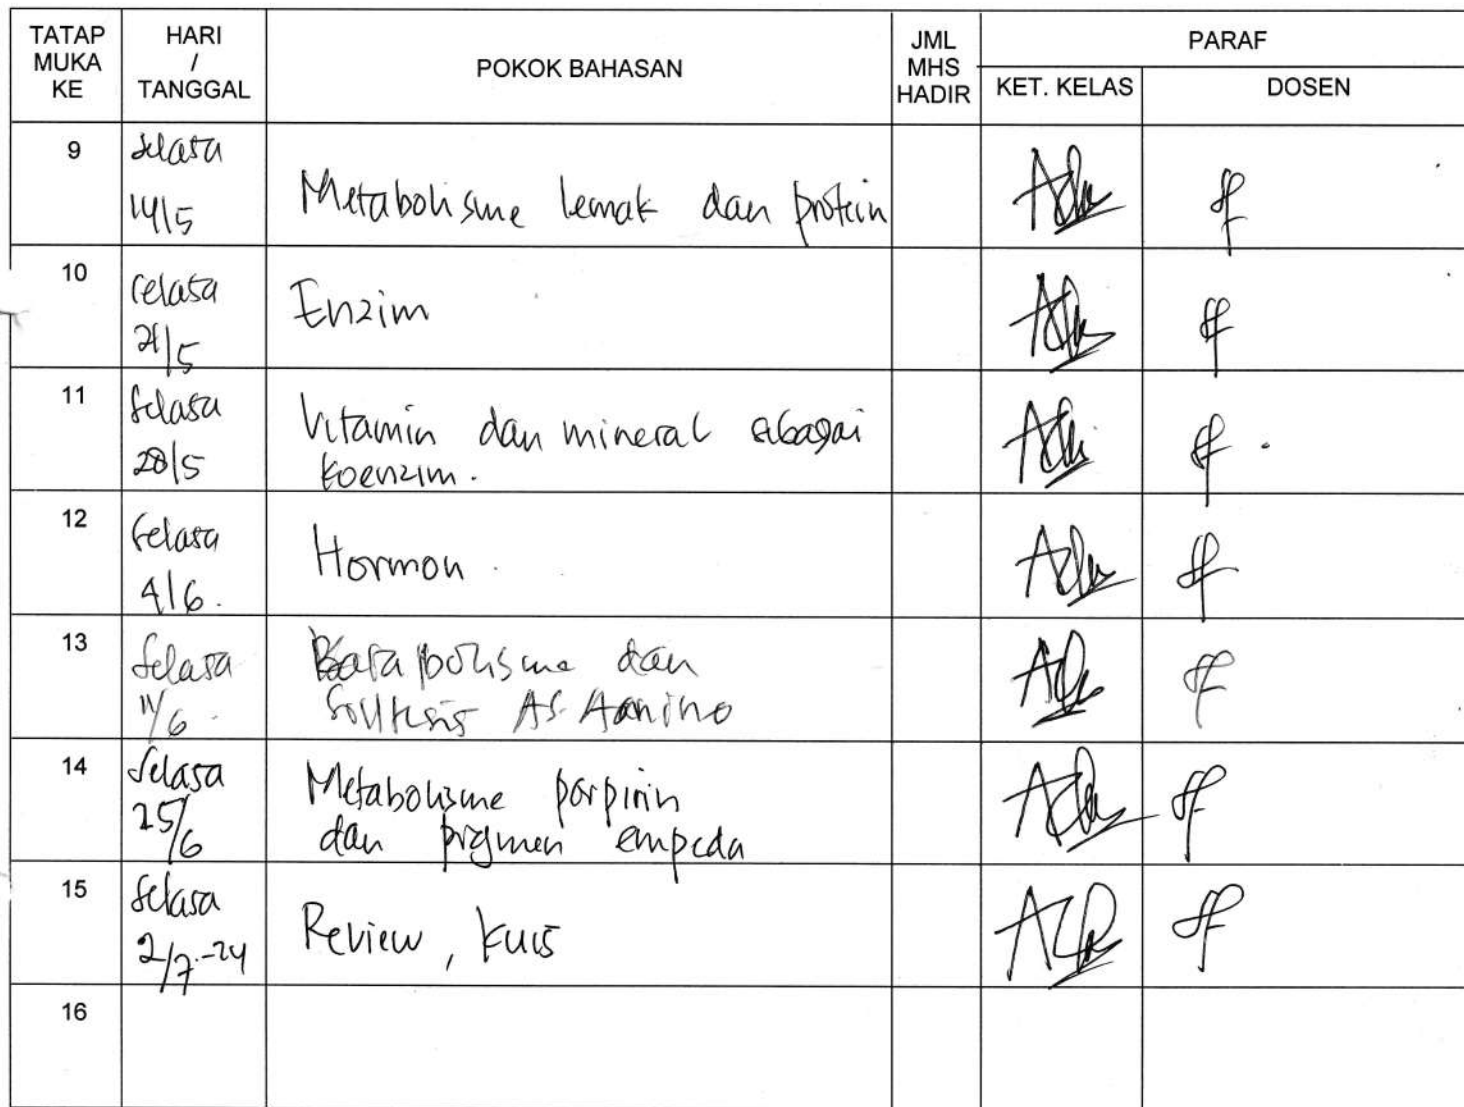 TATAP MUKA KE
HARI / TANGGAL
POKOK BAHASAN
JML MHS HADIR
PARAF
KET. KELAS
DOSEN
9
Selasa
14/5
Metabolisme lemak dan protein
10
Selasa
21/5
Enzim
11
Selasa
28/5
Vitamin dan mineral sebagai
koenzim.
12
Selasa
4/6.
Hormon
13
Selasa
11/6.
dan
As. Amino
14
Selasa
25/6
Metabolisme porpirin
dan pigmen empedu
15
Selasa
2/7-24
Review, kuis
16